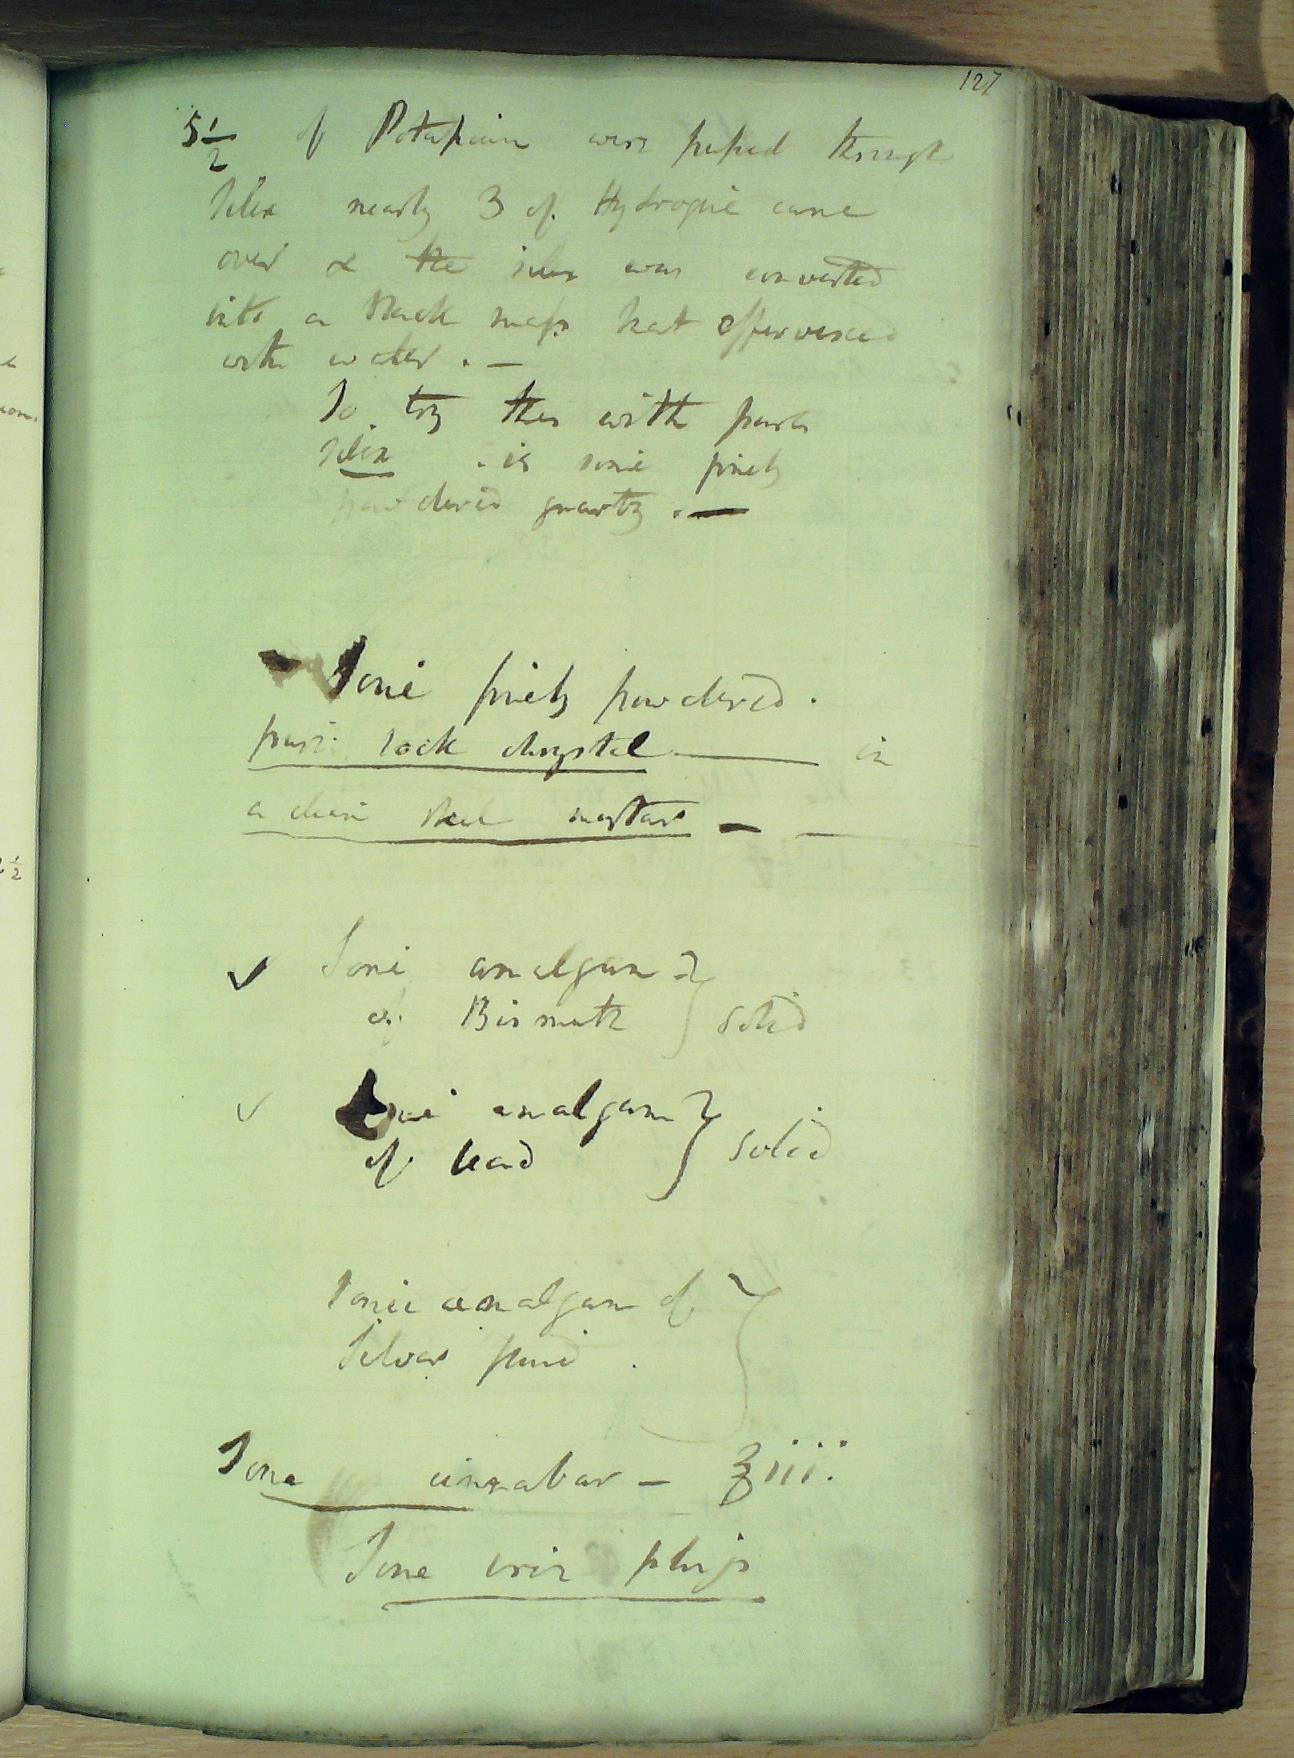 127
5 1/2 of Potassium were passed through
Silex nearly 3 of Hydrogene came
over & the silex was converted
into a black mass that effervesced
with water. —
To try this with pure
Silex . is some finely
powdered quartz. —
Some finely powdered.
pure rock chrystal — in
a clean steel mortar — —
✓ Some amalgam
of Bismuth } solid
✓ Some amalgam
of lead } solid
Some amalgam of
Silver fluid . }
Some cinnabar — ℥iii.
Some iron plugs